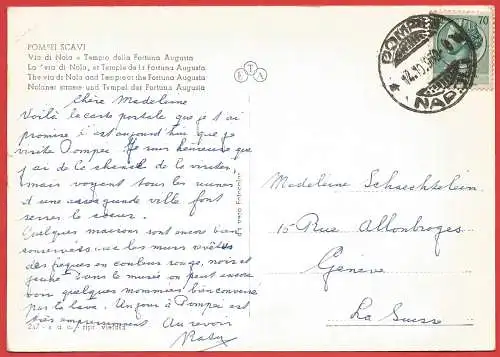 POMPEI SCAVI
Via di Nola e Tempio della Fortuna Augusta
La Via di Nola, et Temple de la Fortuna Augusta
The via di Nola and Temple of the Fortuna Augusta
Nolaner strasse und Tempel der Fortuna Augusta
ETA
POMPEI
NAPOLI
70
Chère Madeleine
Voilà la carte postale que je t'ai
promise c'est aujourd'hui que je
visite Pompei. Je suis heureuse que
j'ai de la chance de la visiter,
mais voyant tous les ruines
d'une assez grande ville font
serrer le coeur.
Quelques maisons sont encore bien
conservées les murs revêtus
des fresques en couleurs rouge, noir et
jaune. Dans le musée on peut encore
voir quelques mommies bien conservé
par la lave. Un jour à Pompei est
très empressionant. Au revoir
Madeleine Schaechtelein
15 Rue Allonbroges
Genève
La Suisse
ripr. vietata